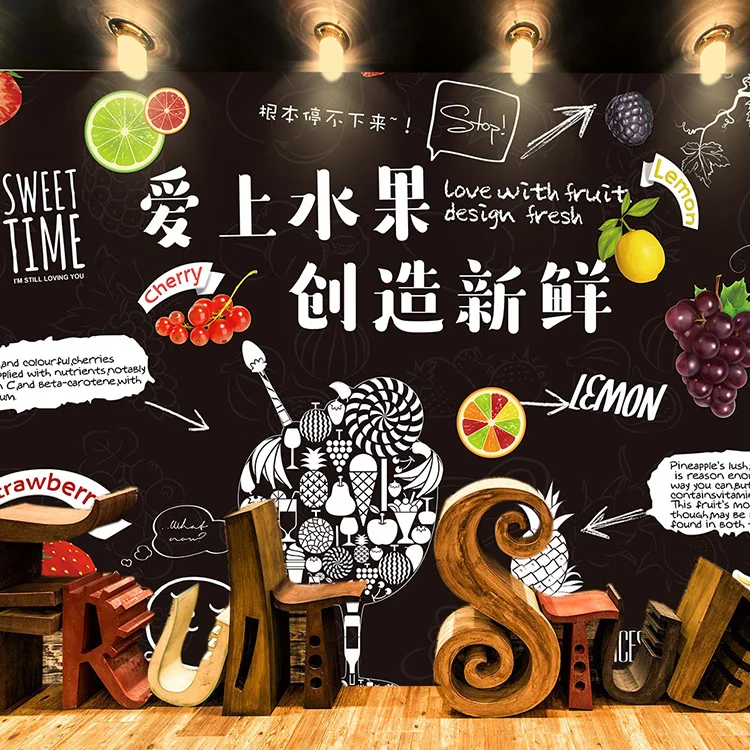 根本停不下来~!
Stop!
SWEET
TIME
I'M STILL LOVING YOU
爱上水果
Love with fruit
design fresh
Lemon
创造新鲜
Cherry
and colourful,cherries
pplied with nutrients,notably
C,and Beta-carotene,with
um.
LEMON
Pineapple's lush,
is reason enou
way you can,But
containsvitami
This fruit's mo
though,may be
found in both
trawberr
...What
now?
FRUIT STU